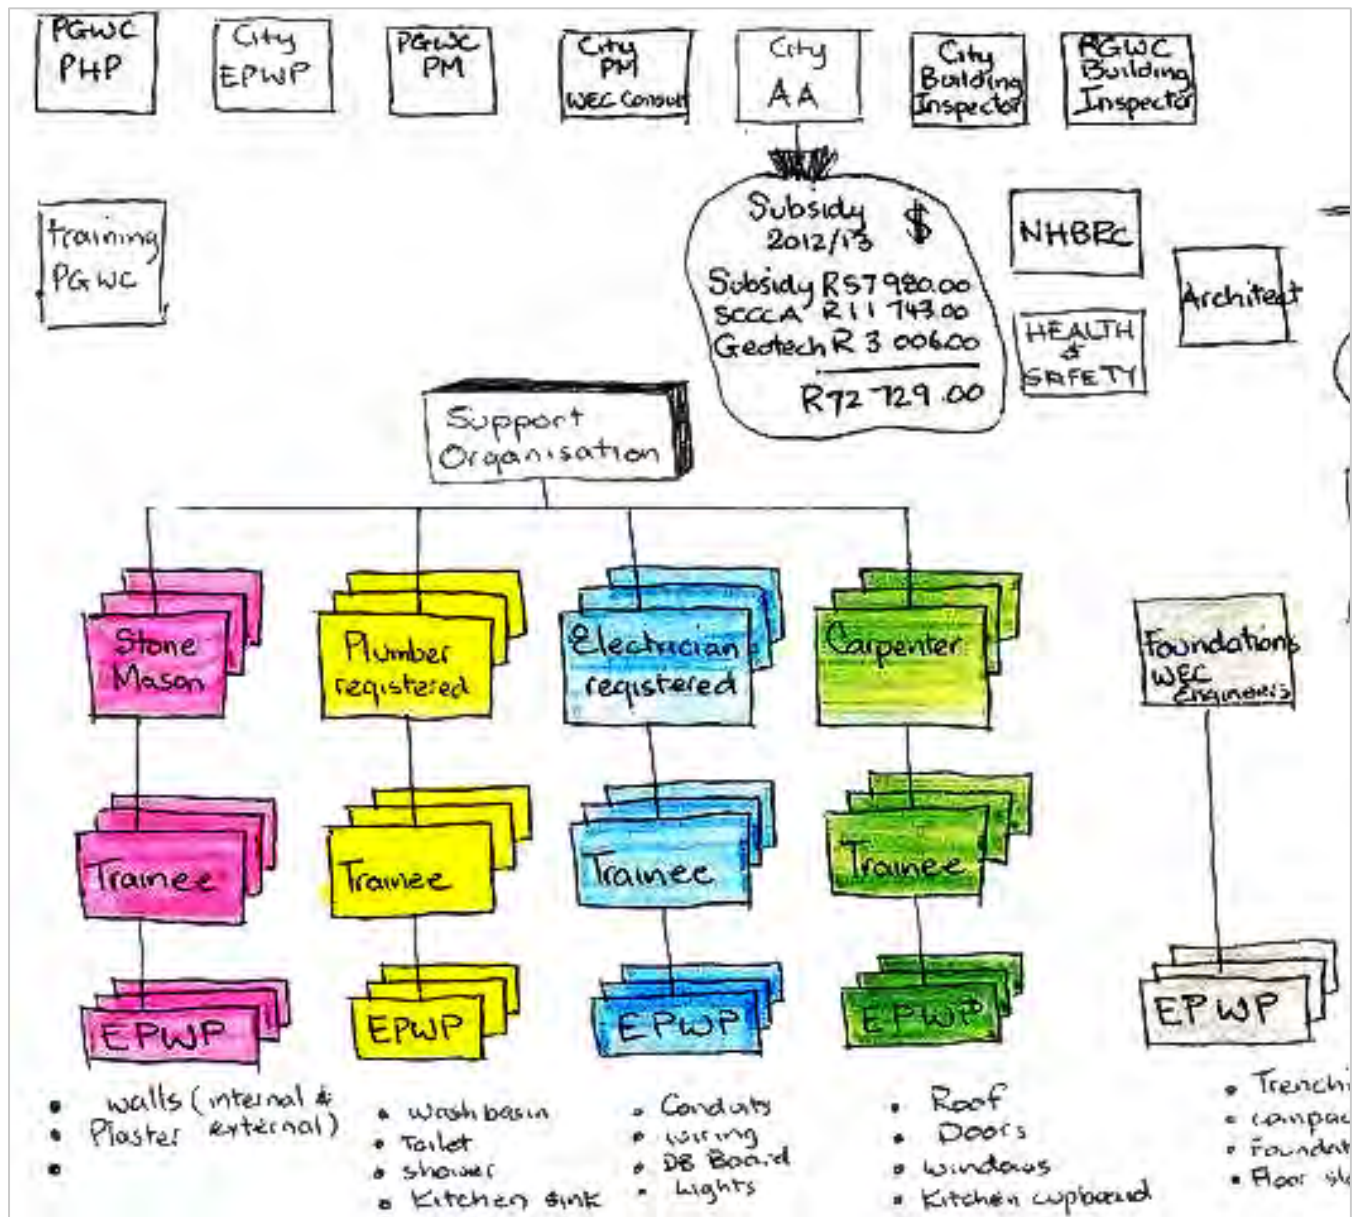 PGWC
PHP
City
EPWP
PGWC
PM
City
PM
WEC Consult
City
AA
City
Building
Inspector
PGWC
Building
Inspector
training
PGWC
Subsidy $
2012/13
Subsidy R57 980.00
SCCCA R11 743.00
Geotech R3 006.00
R72 729.00
NHBRC
HEALTH
&
SAFETY
Architect
Support
Organisation
Stone
Mason
Plumber
registered
Electrician
registered
Carpenter
Foundations
WEC
Engineers
Trainee
Trainee
Trainee
Trainee
EPWP
EPWP
EPWP
EPWP
EPWP
• walls (internal &
• Plaster external)
•
• Wash basin
• Toilet
• shower
• Kitchen sink
• Conduits
• wiring
• DB Board
• Lights
• Roof
• Doors
• windows
• Kitchen cupboard
• Trenchi
• compac
• Foundat
• Floor sla